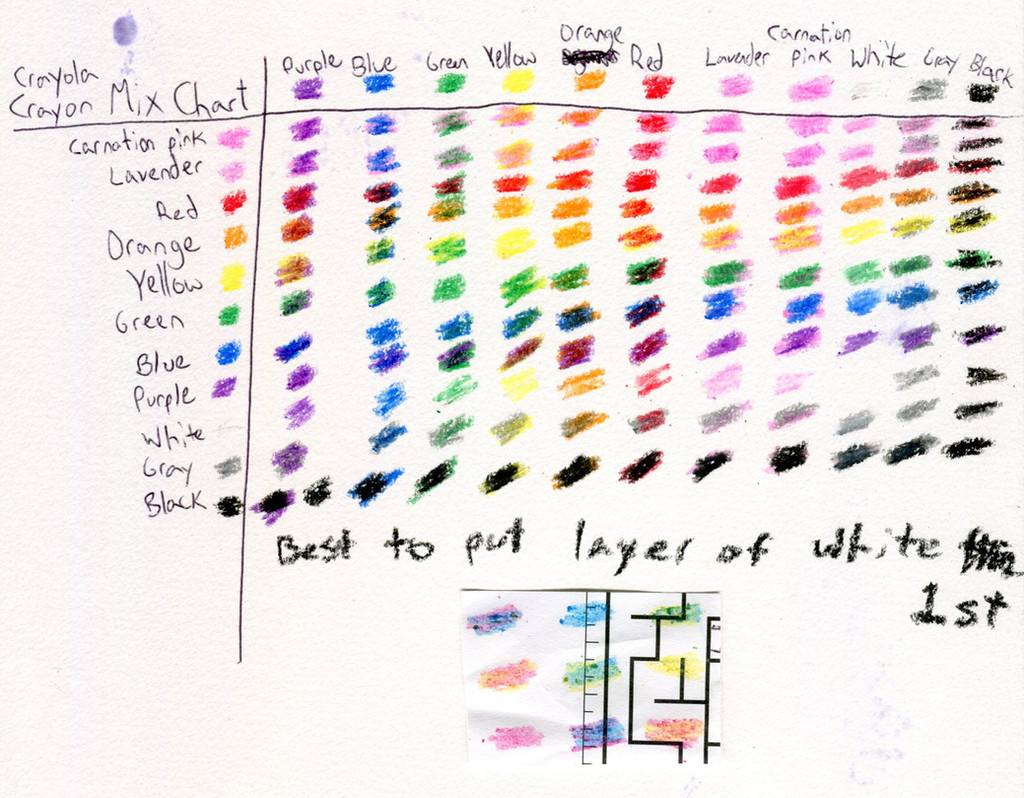 Crayola
Crayon Mix Chart
Purple Blue Green Yellow Orange Red Lavender Carnation pink White Gray Black
Carnation pink
Lavender
Red
Orange
Yellow
Green
Blue
Purple
White
Gray
Black
Best to put layer of white
1st